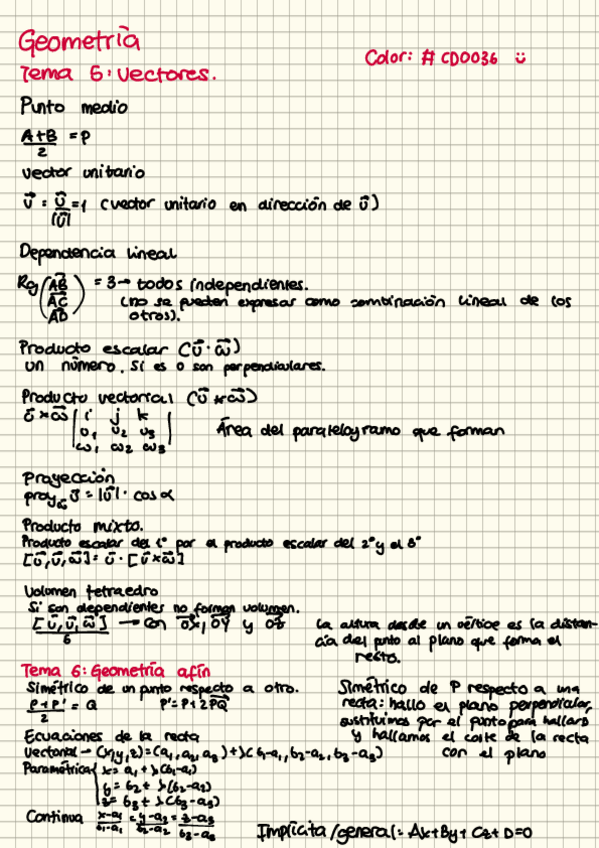 Geometría
Color: # CD0036 ü
Tema 5: Vectores.
Punto medio
A+B/2 = P
Vector unitario
v⃗ = u⃗/|u⃗| = 1 (vector unitario en dirección de u⃗)
Dependencia lineal
Rg (AB⃗ AC⃗ AD⃗) = 3 → todos independientes.
(no se pueden expresar como combinación lineal de los
otros).
Producto escalar (v⃗ · w⃗)
un número. Si es 0 son perpendiculares.
Producto vectorial (v⃗ × w⃗)
v⃗ × w⃗ | i j k
υ1 υ2 υ3
ω1 ω2 ω3 |
Área del paralelogramo que forman
Proyección
proy v⃗ = |v⃗| · cos α
Producto mixto.
Producto escalar del 1º por el producto escalar del 2º y el 3º
[u⃗, v⃗, w⃗] = u⃗ · [v⃗ × w⃗]
Volumen tetraedro
Si son dependientes no forman volumen.
[u⃗, v⃗, w⃗]/6 → con OX⃗, OY⃗ y OZ⃗
La altura desde un vértice es la distan-
cia del punto al plano que forma el
resto.
Tema 6: Geometría afín
Simétrico de un punto respecto a otro.
P+P'/2 = Q P' = P + 2PQ⃗
Simétrico de P respecto a una
recta: hallo el plano perpendicular,
sustituimos por el punto para hallar D
y hallamos el corte de la recta
con el plano
Ecuaciones de la recta
Vectorial → (x,y,z) = (a1, a2, a3) + λ(b1-a1, b2-a2, b3-a3)
Paramétrica { x = a1 + λ(b1-a1)
y = b2 + λ(b2-a2)
z = b3 + λ(b3-a3)
Continua x-a1/b1-a1 = y-a2/b2-a2 = z-a3/b3-a3
Implícita/general: Ax+By+Cz+D=0